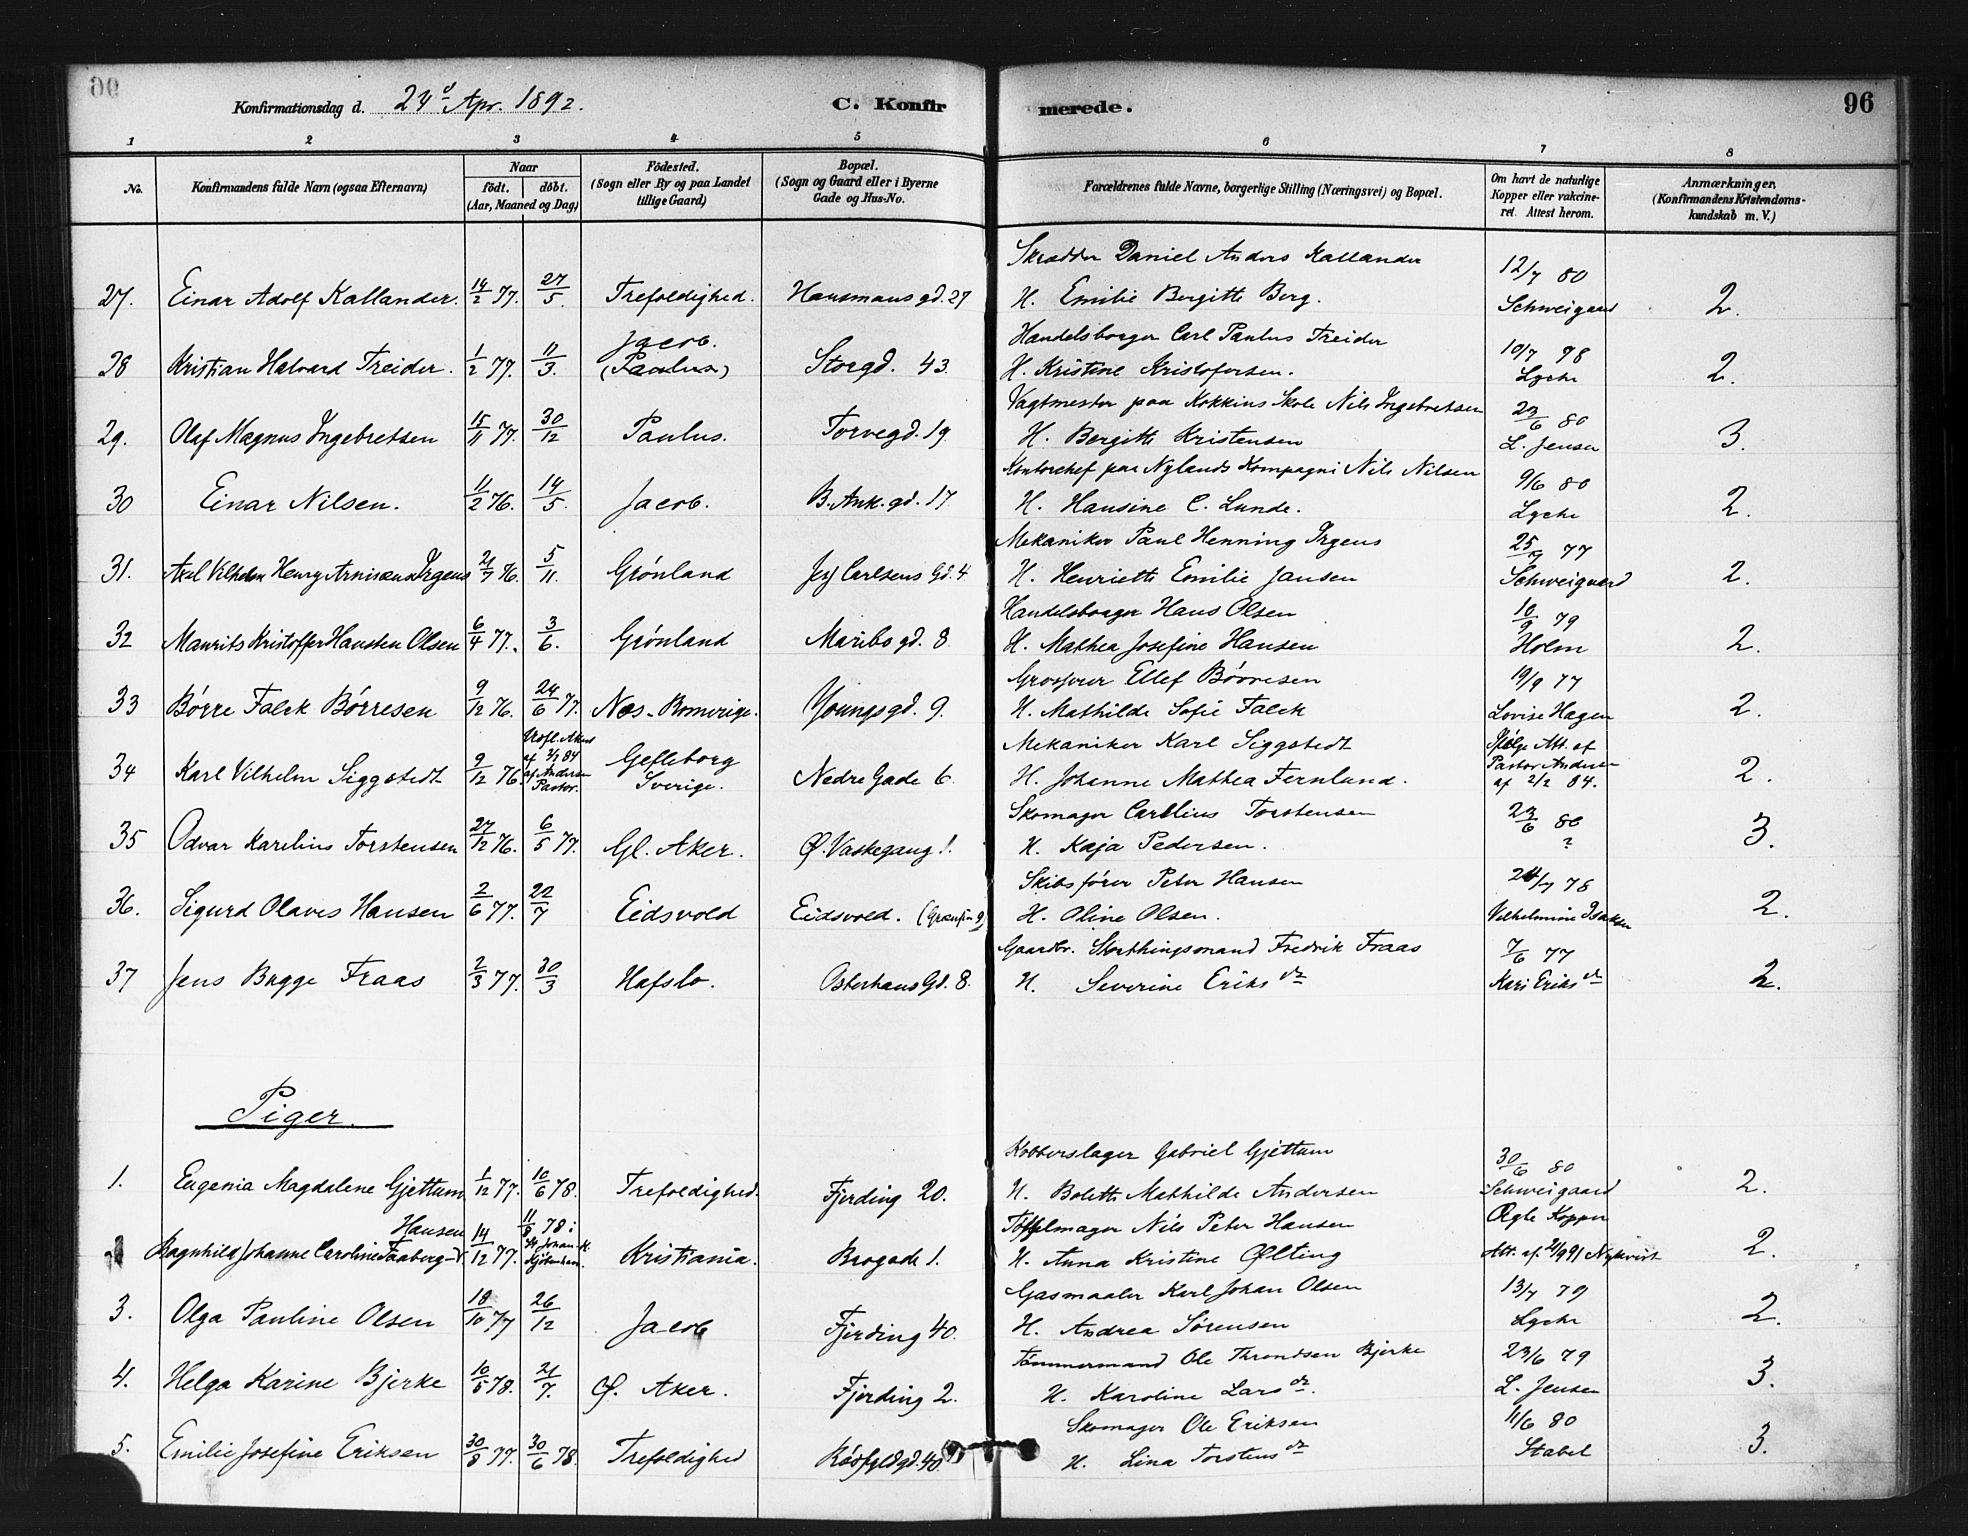 96
Konfirmationsdag d. 24d Apr. 1892. C. Konfirmerede. 96
1 2 3 4 5 6 7 8
No. Konfirmandens fulde Navn (ogsaa Efternavn) Naar født. døbt. (Aar, Maaned og Dag) Fødested. (Sogn eller By og paa Landet tillige Gaard) Bopæl. (Sogn og Gaard eller i Byerne Gade og Hus-No. Forældrenes fulde Navne, borgerlige Stilling (Næringsvei) og Bopæl. Om havt de naturlige Kopper eller vakcineret. Attest herom. Anmærkninger. (Konfirmandens Kristendomskundskab m. V.)
Skrædder Daniel Anders Kallander 12/7 80
27. Einar Adolf Kallander. 14/2 77. 27/5. Trefoldighed. Hausmans gd. 27 H. Emilie Bergitte Berg. Schweigaard 2.
Jacob. Handelsborger Carl Paulus Treider
28 Kristian Halvard Treider. 1/2 77. 11/3. (Paulus) Storgd. 43. H. Kristine Kristofersen. 10/7 78 Lyche 2.
Vagtmester paa Kokkins Skole Nils Ingebretsen
29. Olaf Magnus Ingebretsen 15/11 77. 30/12 Paulus. Torvegd. 19 H. Bergitte Kristensen 23/6 80 L. Jensen 3.
Kontorchef paa Nylands Kompagni Nils Nilsen 9/6 80
30 Einar Nilsen. 11/2 76. 14/5. Jacob. B. Ank. gd. 17 H. Hansine C. Lunde. Lyche 2.
Mekaniker Paul Henning Irgens 25/7 77
31. Axel Vilhelm Henry Arnisæus Irgens 21/7 76. 5/11. Grønland Jes Carlsens Gd. 4 H. Henriette Emilie Jansen Schweigaard 2.
Handelsborger Hans Olsen 10/9 79
32 Maurits Kristoffer Hansten Olsen 6/4 77. 3/6. Grønland Maribo gd. 8. H. Mathea Josefine Hansen Holm 2.
Grosserer Ellef Børresen 19/9 77
33 Børre Falck Børresen 9/12 76. 24/6 77. Nes-Romerige. Youngsgd. 9. H. Mathilde Sofie Falck Lovise Hagen 2.
Mekaniker Karl Siggstedt
34 Karl Vilhelm Siggstedt 9/12 76. af 2/2 84 af Andersen Pastor. Gefleborg Sverige. Nedre Gade 6. H. Johanne Mathea Fernlund. Ifølge Att. af Pastor Andersen af 2/2 84. 2.
Skomager Carelius Torstensen
35 Odvar Karelius Torstensen 27/12 76. 6/5 77. Gl. Aker. Ø. Vaskegang 1. H. Kaja Pedersen. 23/6 80 ? 3.
Skibsfører Peter Hansen
36. Sigurd Olaves Hansen 2/6 77. 22/7 Eidsvold Eidsvold. H. Oline Olsen. /7 78 Vilhelmine Isaksen 2.
Gaardbr. Storthingsmand Fredrik Fraas 7/6 77
37 Jens Bugge Fraas 2/3 77. 30/3 Hafslo. Osterhaus Gd. 8. H. Severine Eriks dr Kari Eriks dr 2.
Piger.
Kobberslager Gabriel Gjettum 30/6 80
1. Eugenia Magdalene Gjettum 1/12 77. 10/6 78. Trefoldighed. Fjerding 20. H. Bolette Mathilde Andersen Schweigaard 2.
Hansen Tøffelmager Nils Peter Hansen
Ragnhild Johanne Caroline Taaberg 14/12 77. 11/8 78 i St. Johan. K. Kjøbenhavn. Kristiania. Brogade 1. H. Anna Kristine Ølting Ægte Kopper Att. af 2/9 91 Nykvist 2.
Gasmaaler Karl Johan Olsen 13/7 79
3. Olga Pauline Olsen 18/10 77 26/12 Jacob Fjerding 40. H. Andrea Sørensen Lyche 2.
Tømmermand Ole Throndsen Bjerke
4. Helga Karine Bjerke 10/5 78. 21/7. Ø. Aker. Fjerding 2. H. Karoline Lars dr. 23/6 79 L. Jensen 3.
Skomager Ole Eriksen 11/6 80
5. Emilie Josefine Eriksen 30/8 77. 30/6 78. Trefoldighed H. Lina Torstens dr Stabel 3.